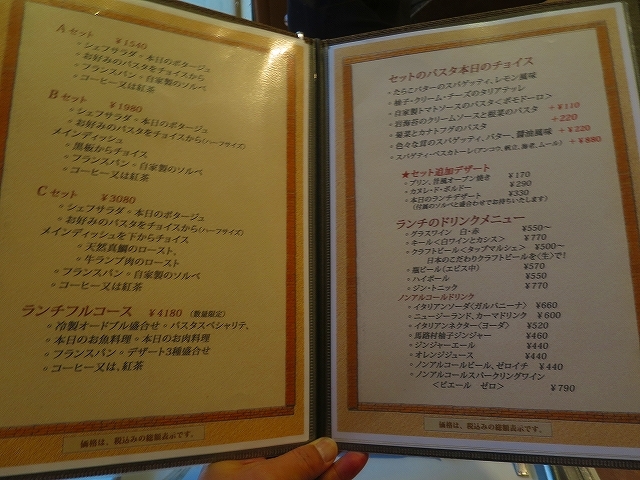 Aセット ￥1540
◦シェフサラダ◦本日のポタージュ
◦お好みのパスタをチョイスから
◦フランスパン◦自家製のソルベ
◦コーヒー又は紅茶
Bセット ￥1980
◦シェフサラダ◦本日のポタージュ
◦お好みのパスタをチョイスから(ハーフサイズ)
メインディッシュ
◦黒板からチョイス
◦フランスパン◦自家製のソルベ
◦コーヒー又は紅茶
Cセット ￥3080
◦シェフサラダ◦本日のポタージュ
◦お好みのパスタをチョイスから(ハーフサイズ)
メインディッシュを下からチョイス
◦天然真鯛のロースト、
◦牛ランプ肉のロースト
◦フランスパン◦自家製のソルベ
◦コーヒー又は紅茶
ランチフルコース ￥4180 (数量限定)
◦冷製オードブル盛合せ◦パスタスペシャリテ、
◦本日のお魚料理◦本日のお肉料理
◦フランスパン◦デザート3種盛合せ
◦コーヒー又は、紅茶
価格は、税込みの総額表示です。
セットのパスタ本日のチョイス
◦たらこバターのスパゲッティ、レモン風味
◦柚子・クリーム・チーズのタリアテッレ
◦自家製トマトソースのパスタ<ポモドーロ>
◦岩海苔のクリームソースと根菜のパスタ +￥110
◦菊菜とカナトフグのパスタ +220
◦色々な茸のスパゲッティ、バター、醤油風味 +￥220
◦スパゲティーペスカトーレ(アンコウ、帆立、海老、ムール) +￥880
★セット追加デザート
◦プリン、昔風オーブン焼き ￥170
◦カヌレ・ド・ボルドー ￥290
◦本日のランチデザート ￥330
(付属のソルベと盛合わせでお持ちいたします)
ランチのドリンクメニュー
◦グラスワイン 白・赤 ￥550～
◦キール<白ワインとカシス> ￥770
◦クラフトビール<タップマルシェ> ￥500～
日本のこだわりクラフトビールを<生>で!
◦瓶ビール(エビス中) ￥570
◦ハイボール ￥550
◦ジン・トニック ￥770
ノンアルコールドリンク
◦イタリアンソーダ<ガルバニーナ> ￥660
◦ニュージーランド、カーマドリンク ￥600
◦イタリアンネクター<ヨーダ> ￥520
◦馬路村柚子ジンジャー ￥460
◦ジンジャーエール ￥440
◦オレンジジュース ￥440
◦ノンアルコールビール、ゼロイチ ￥440
◦ノンアルコールスパークリングワイン
<ピエール ゼロ> ￥790
価格は、税込みの総額表示です。